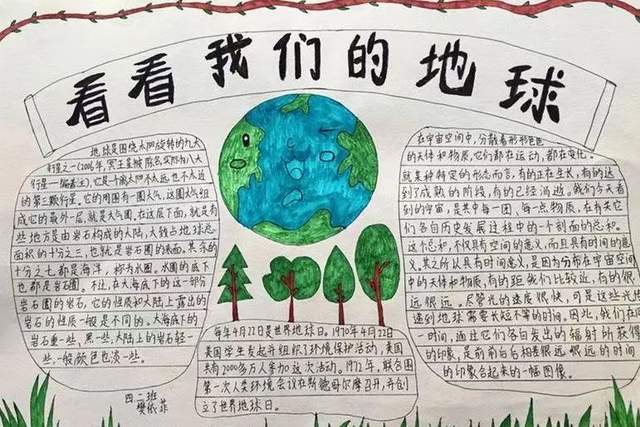 看看我们的地球
地球是围绕太阳旋转的九大
行星之一(2006年,冥王星被除名,实际为八大
行星——编者注),它是个离太阳不太远也不太近
的第三颗行星。它的周围有一圈大气,这圈大气组
成它的最外一层,就是大气圈。在这层下面,就是有
些地方是由岩石构成的大陆,大致占地球总
面积的十分之三,也就是岩石圈的表面。其余的
十分之七都是海洋,称为水圈。水圈的底下
也都是岩石圈。不过,在大海底下的这一部分
岩石圈的岩石,它的性质和大陆上露出的
岩石的性质一般是不同的。大海底下的
岩石重一些、黑一些,大陆上的岩石轻一
些,一般颜色也淡一些。
四二班
樊依菲
每年4月22日是世界地球日。1970年4月22日
美国学生发起并组织了环境保护活动,美国
共有2000多万人参加这次活动。1972年,联合国
第一次人类环境会议在斯德哥尔摩召开,并创
立了世界地球日。
在宇宙空间中,分散着形形色色
的天体和物质,它们都在运动,都在变化。
就某种特定的形态而言,有的正在生长,有的达
到了成熟的阶段,有的已经消逝。我们今天看
到的宇宙,是其中每一团、每一点物质,在有关它
们各自历史发展过程中的一个剖面的总和。
这个总和,不仅具有空间的意义,而且具有时间的意
义。其之所以具有时间意义,是因为分布在宇宙空间
中的天体和物质,有的距我们比较近,有的很
远很远。尽管光的速度很快,可是这些光线
達到地球需要长短不等的时间。因此,我们在同
一时间,通过它们各自发出的辐射所获得
的印象,是前前后后相差很远很远的时间
的印象合起来的一幅图像。